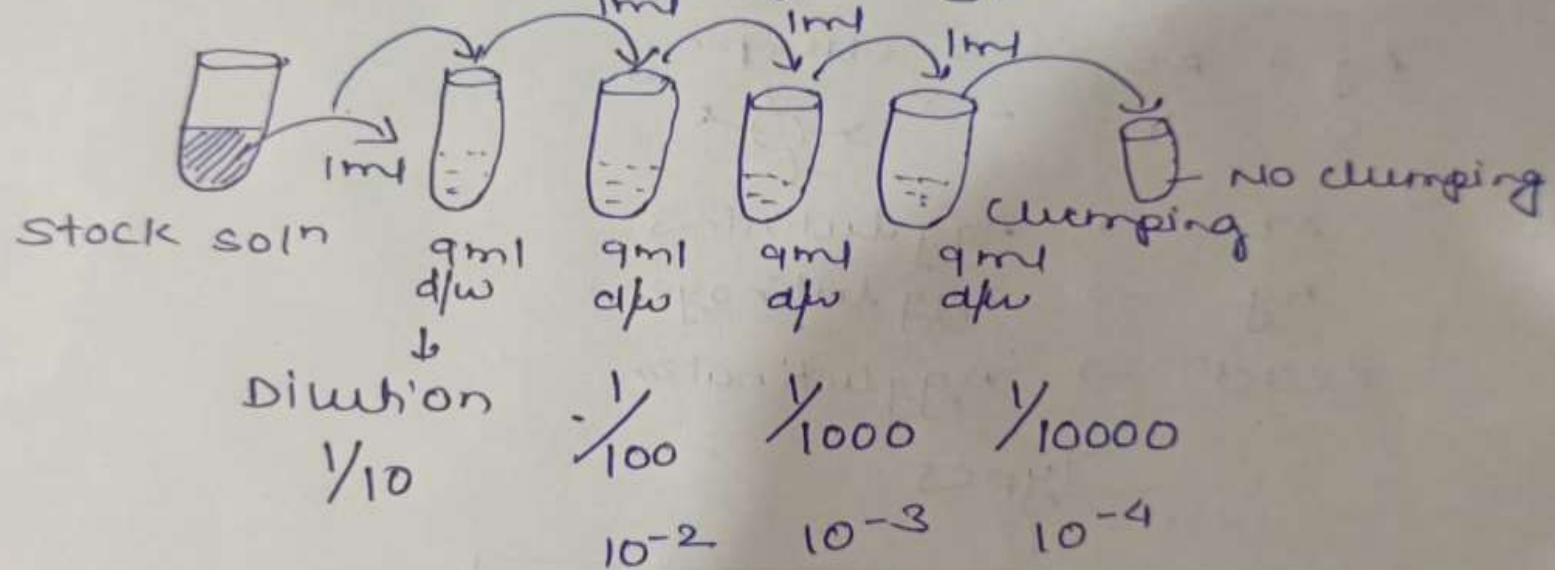 1ml 1ml 1ml
1ml
No clumping
Clumping
Stock solⁿ
9ml 9ml 9ml 9ml
d/w d/w d/w d/w
↓
Dilution
1/10 1/100 1/1000 1/10000
10⁻² 10⁻³ 10⁻⁴